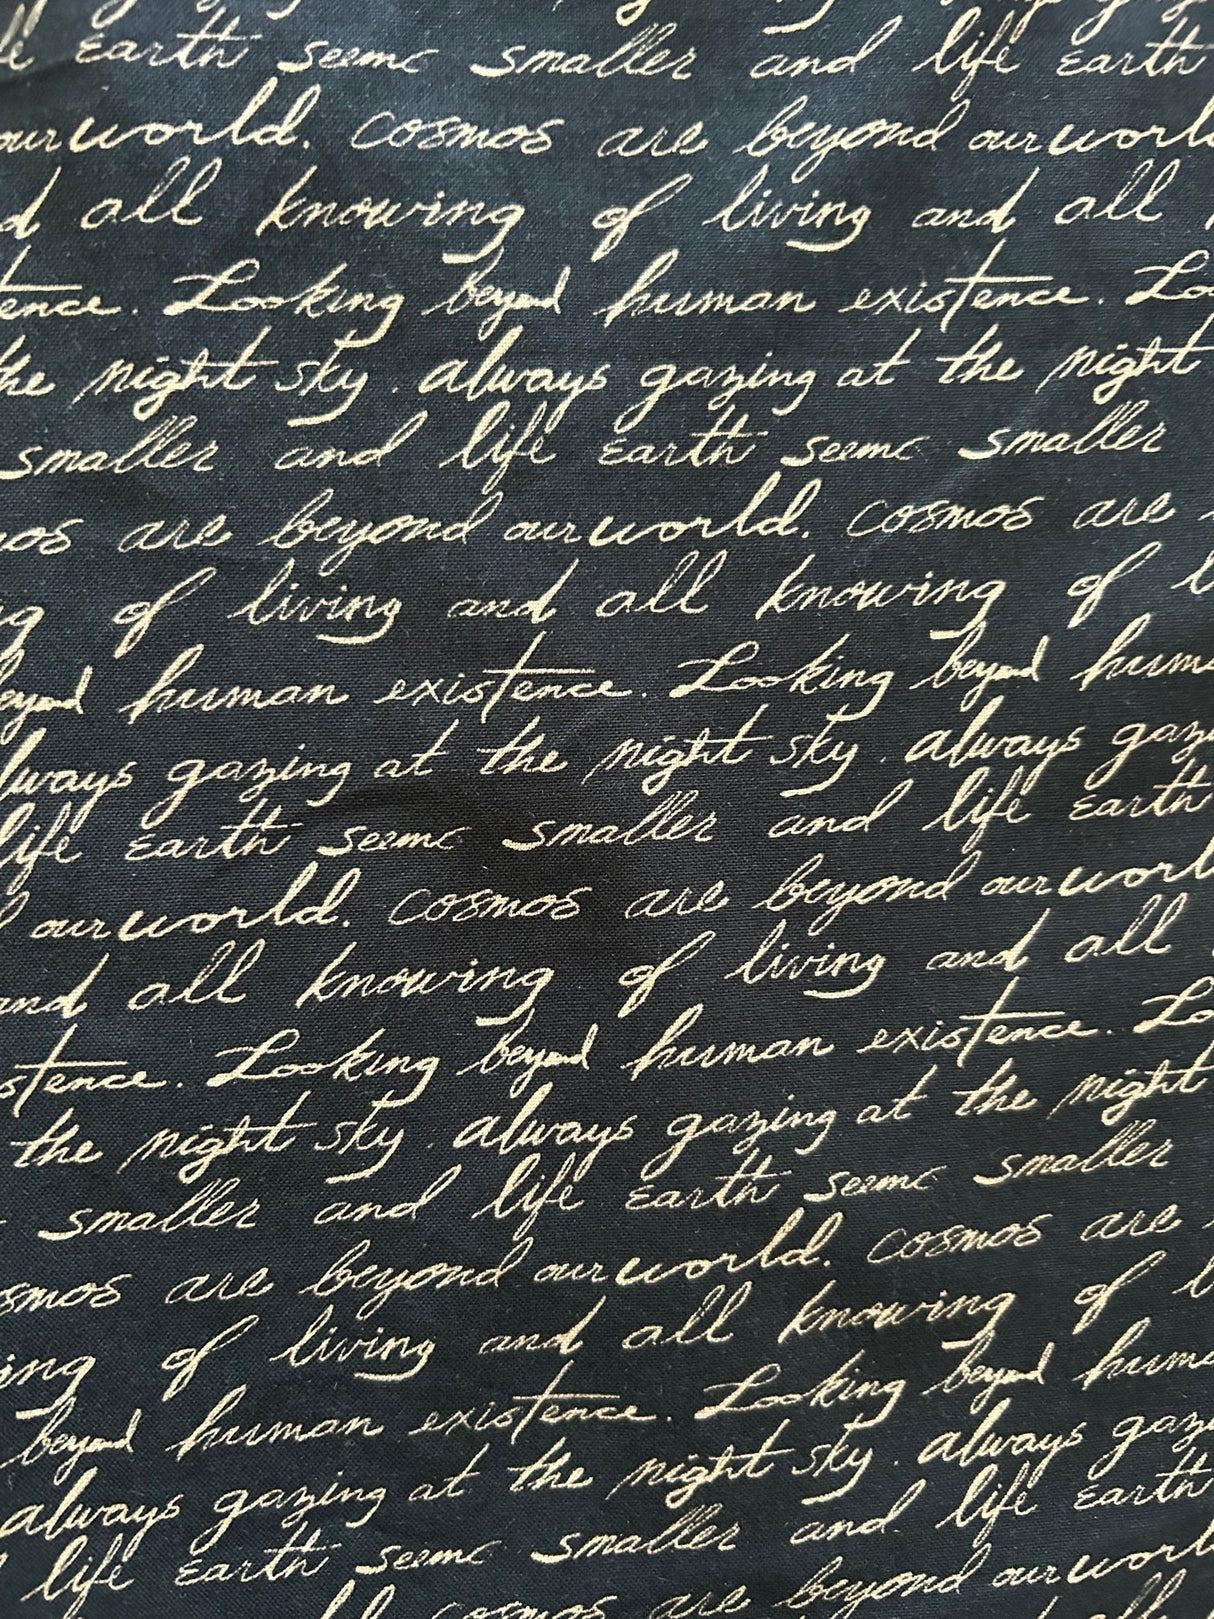 earth seems smaller and life earth
our world. cosmos are beyond our world
all knowing of living and all
Looking beyond human existence.
night sky. always gazing at the night
smaller and life earth seems smaller
are beyond our world. cosmos are
of living and all knowing of
human existence. Looking beyond
gazing at the night sky. always
life earth seems smaller and life earth
our world. cosmos are beyond our
and all knowing of living and all
Looking beyond human existence.
the night sky. always gazing at the night
smaller and life earth seems smaller
are beyond our world. cosmos are
of living and all knowing of
beyond human existence. Looking beyond
always gazing at the night sky. always
life earth seems smaller and life earth
cosmos are beyond our